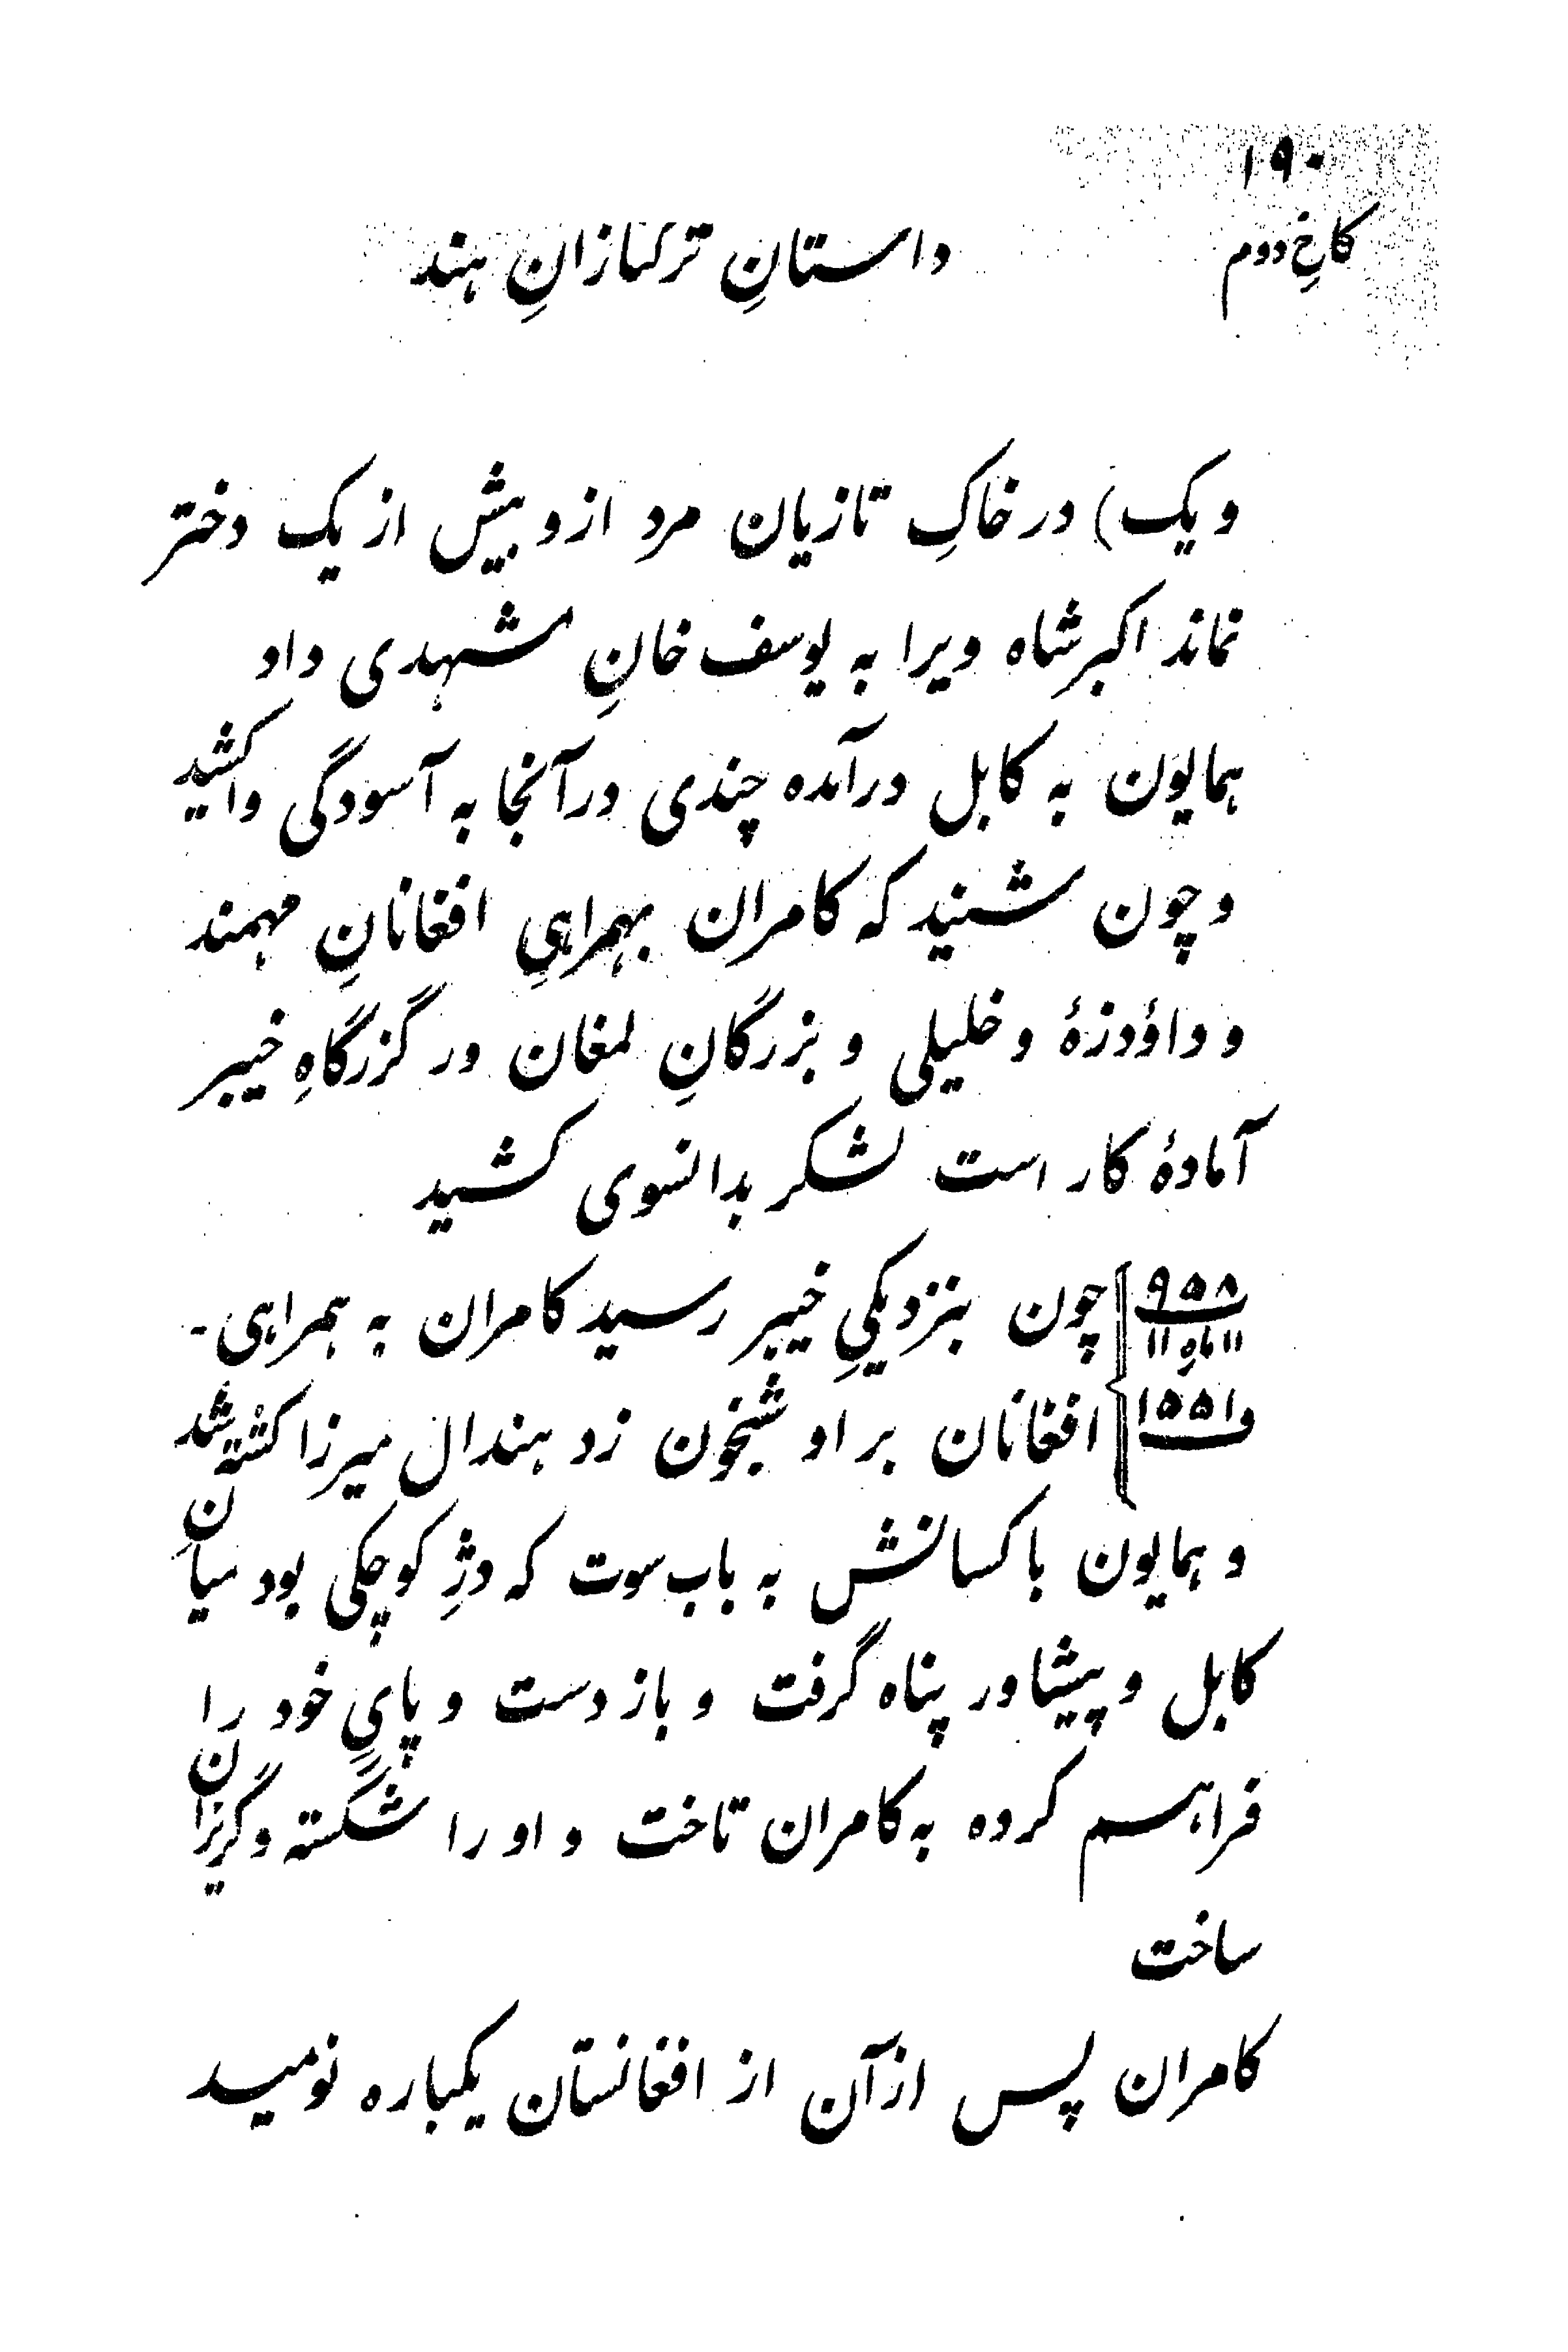 ۱۹۰
کاخِ دوم
داستانِ ترکتازانِ هند
و یک) در خاکِ تازیان مرد ازو بیش از یک دختر
نماند اکبرشاه ویرا به یوسف خانِ مشهدی داد
همایون به کابل درآمده چندی درآنجا به آسودگی واکشید
و چون شنید که کامران بهمراهیِ افغانانِ مهمند
و داؤدزهٔ و خلیلی و بزرگانِ لمغان در گزرگاهِ خیبر
آمادهٔ کار است لشکر بدانسوی کشید
۹۵۸ ۱۱ ماهِ ۱۱ ۱۵۵۱ چون بنزدیکیِ خیبر رسید کامران به همراهی-
افغانان بر او شبخون زد هندال میرزا کشته شد
و همایون با کسانش به باب سوت که دژِ کوچکی بود میانِ
کابل و پیشاور پناه گرفت و باز دست و پایِ خود را
فراهم کرده به کامران تاخت و او را شکسته و گریزان
ساخت
کامران پس ازآن از افغانستان یکباره نومید